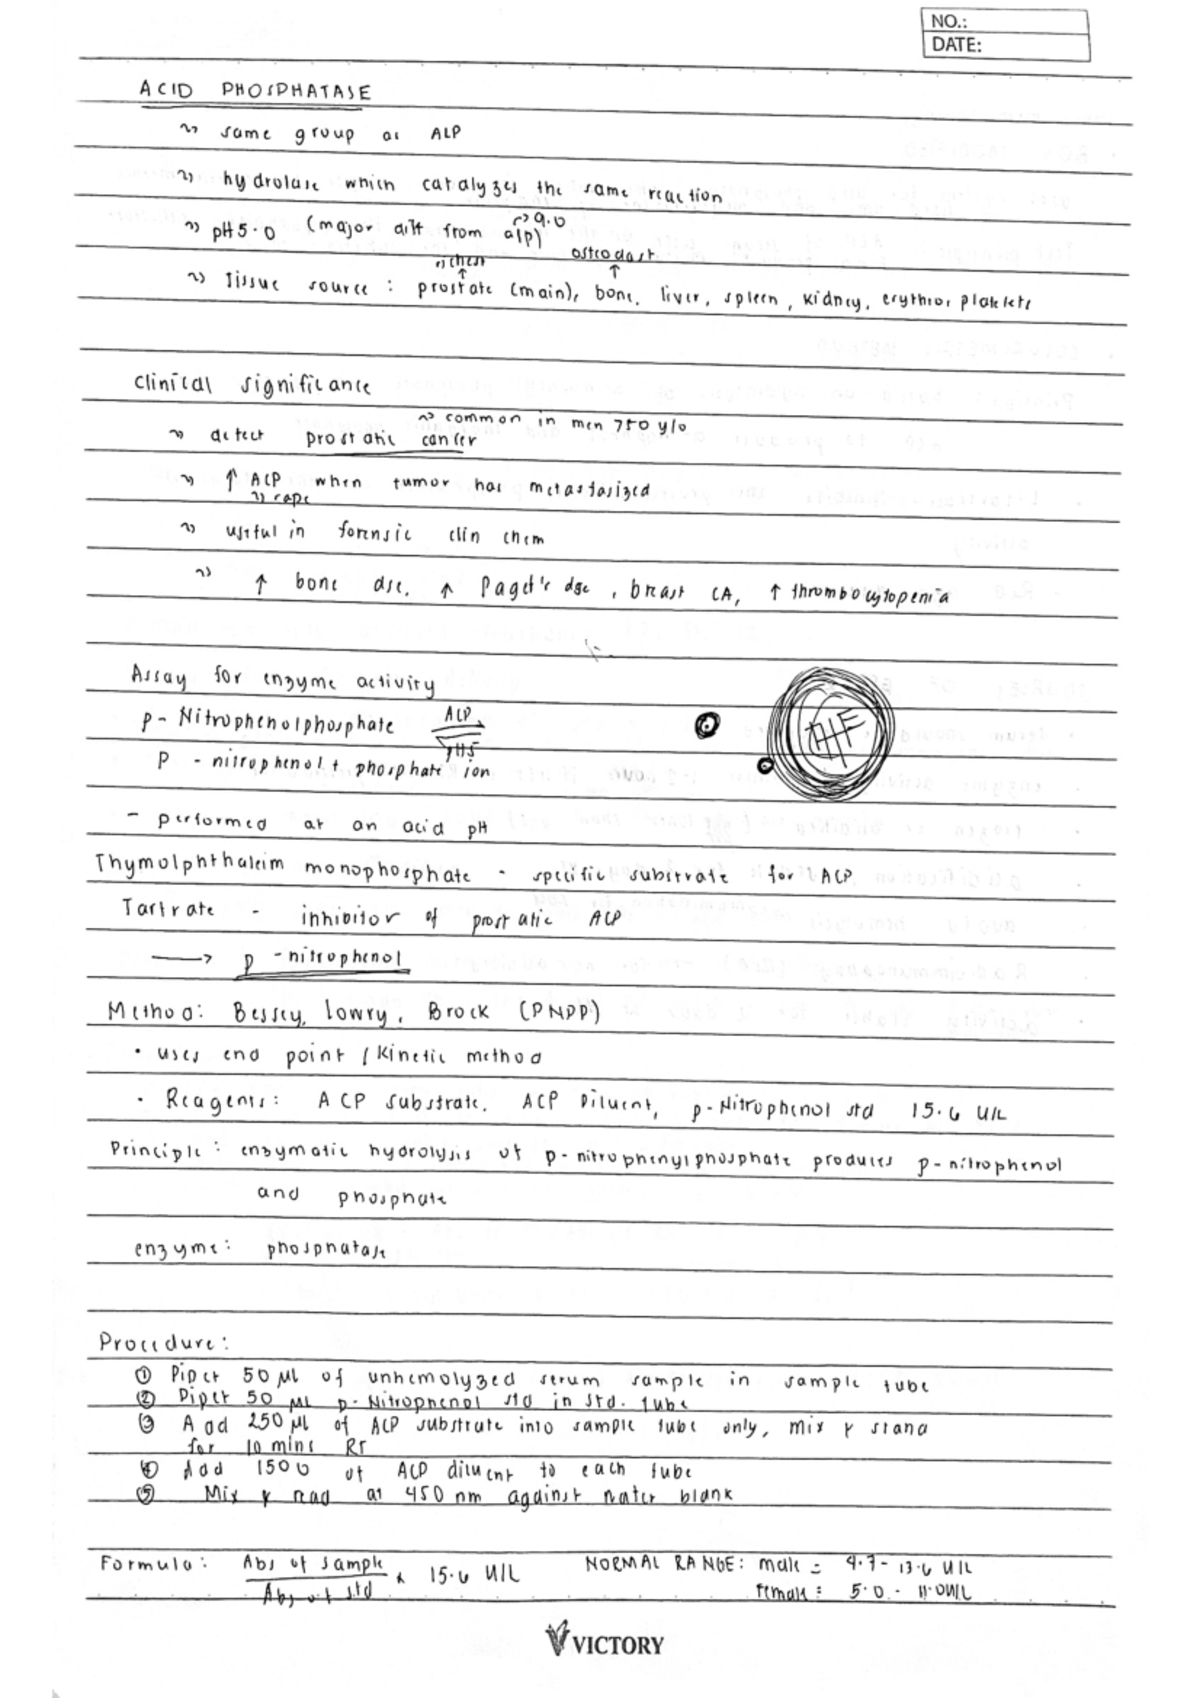 NO.:
DATE:
ACID PHOSPHATASE
~> same group as ALP
~> hydrolase which catalyzes the same reaction
↱> 9.0
~> pH 5.0 (major diff from alp)
richest osteoclast
~> Tissue source : prostate (main), bone, liver, spleen, kidney, erythro, platelets
Clinical significance
~> common in men >50 y/o
~> detect prostatic cancer
~> ↑ ACP when tumor has metastasized
~> rape
~> useful in forensic clin chem
~> ↑ bone dse, ↑ Paget's dse, breast CA, ↑ thrombocytopenia
Assay for enzyme activity
p-Nitrophenolphosphate ACP pH5
P - nitrophenol + phosphate ion
- performed at an acid pH
Thymolphthalein monophosphate - specific substrate for ACP
Tartrate - inhibitor of prostatic ACP
→ p-nitrophenol
Method: Bessey, Lowry, Brock (PNPP)
• uses end point / kinetic method
• Reagents: ACP substrate, ACP Diluent, p-Nitrophenol std 15.6 U/L
Principle: enzymatic hydrolysis of p-nitrophenylphosphate produces p-nitrophenol
and phosphate
enzyme: phosphatase
Procedure:
① Pipet 50 µl of unhemolyzed serum sample in sample tube
② Pipet 50 µL p-Nitrophenol std in std. tube
③ Add 250 µl of ACP substrate into sample tube only, mix & stand
for 10 mins RT
④ Add 1500 of ACP diluent to each tube
⑤ Mix & read at 450 nm against water blank
Formula: Abs of sample / Abs of std x 15.6 U/L NORMAL RANGE: male = 4.7 - 13.6 U/L
Female = 5.0 - 11.0 U/L
VICTORY